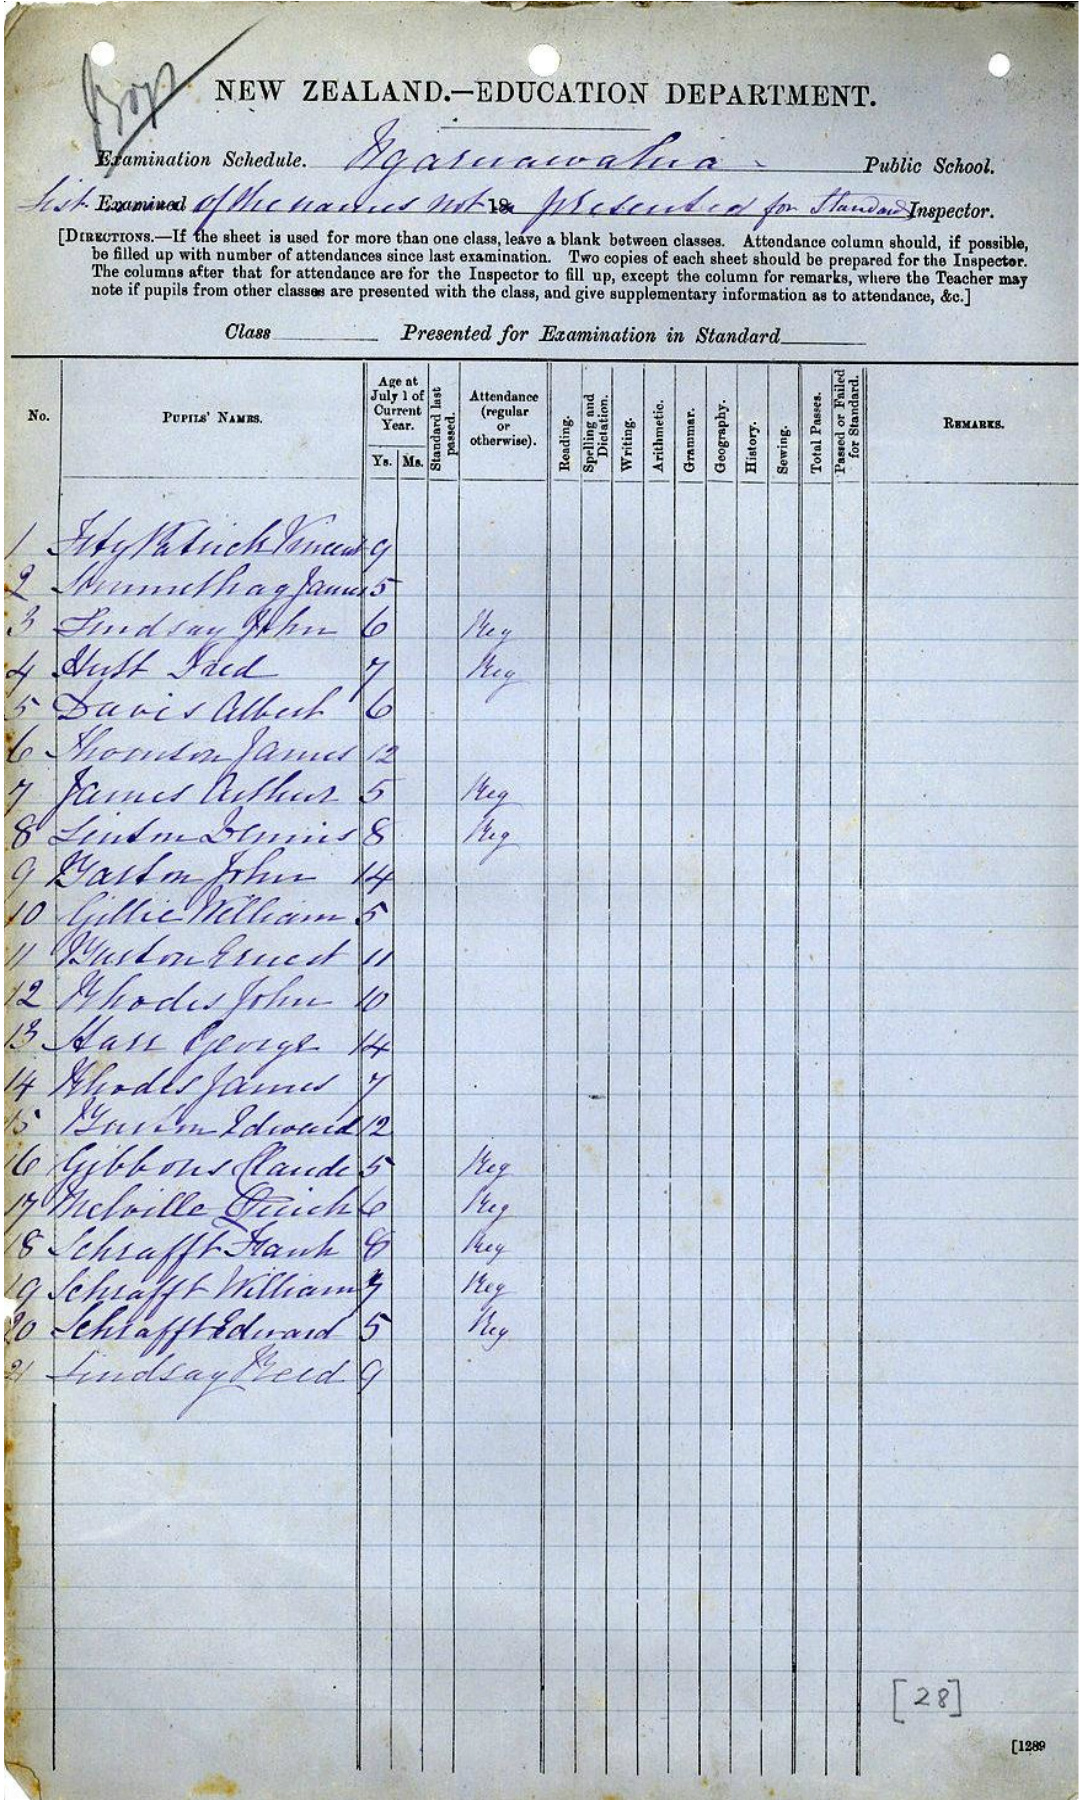 Boys
NEW ZEALAND.—EDUCATION DEPARTMENT.
Examination Schedule. Ngaruawahia Public School.
List Examined of the names not 18 presented for Standard Inspector.
[DIRECTIONS.—If the sheet is used for more than one class, leave a blank between classes. Attendance column should, if possible,
be filled up with number of attendances since last examination. Two copies of each sheet should be prepared for the Inspector.
The columns after that for attendance are for the Inspector to fill up, except the column for remarks, where the Teacher may
note if pupils from other classes are presented with the class, and give supplementary information as to attendance, &c.]
Class Presented for Examination in Standard
No. PUPILS' NAMES. Age at July 1 of Current Year. Ys. Ms. Standard last passed. Attendance (regular or otherwise). Reading. Spelling and Dictation. Writing. Arithmetic. Grammar. Geography. History. Sewing. Total Passes. Passed or Failed for Standard. REMARKS.
1 FitzPatrick Vincent 9
2 James 5
3 Lindsay John 6 Reg
4 Fred 7 Reg
5 Davis Albert 6
6 Thomson James 12
7 James Arthur 5 Reg
8 Linton Dennis 8 Reg
9 Barton John 14
10 Gillie William 5
11 Barton Ernest 11
12 Rhodes John 10
13 George 14
14 Rhodes James 7
15 Barton Edward 12
16 Gibbons Claude 5 Reg
17 Melville 6 Reg
18 Schrafft Frank 8 Reg
19 Schrafft William 7 Reg
20 Schrafft Edward 5 Reg
21 Lindsay Reid 9
[28]
[1289